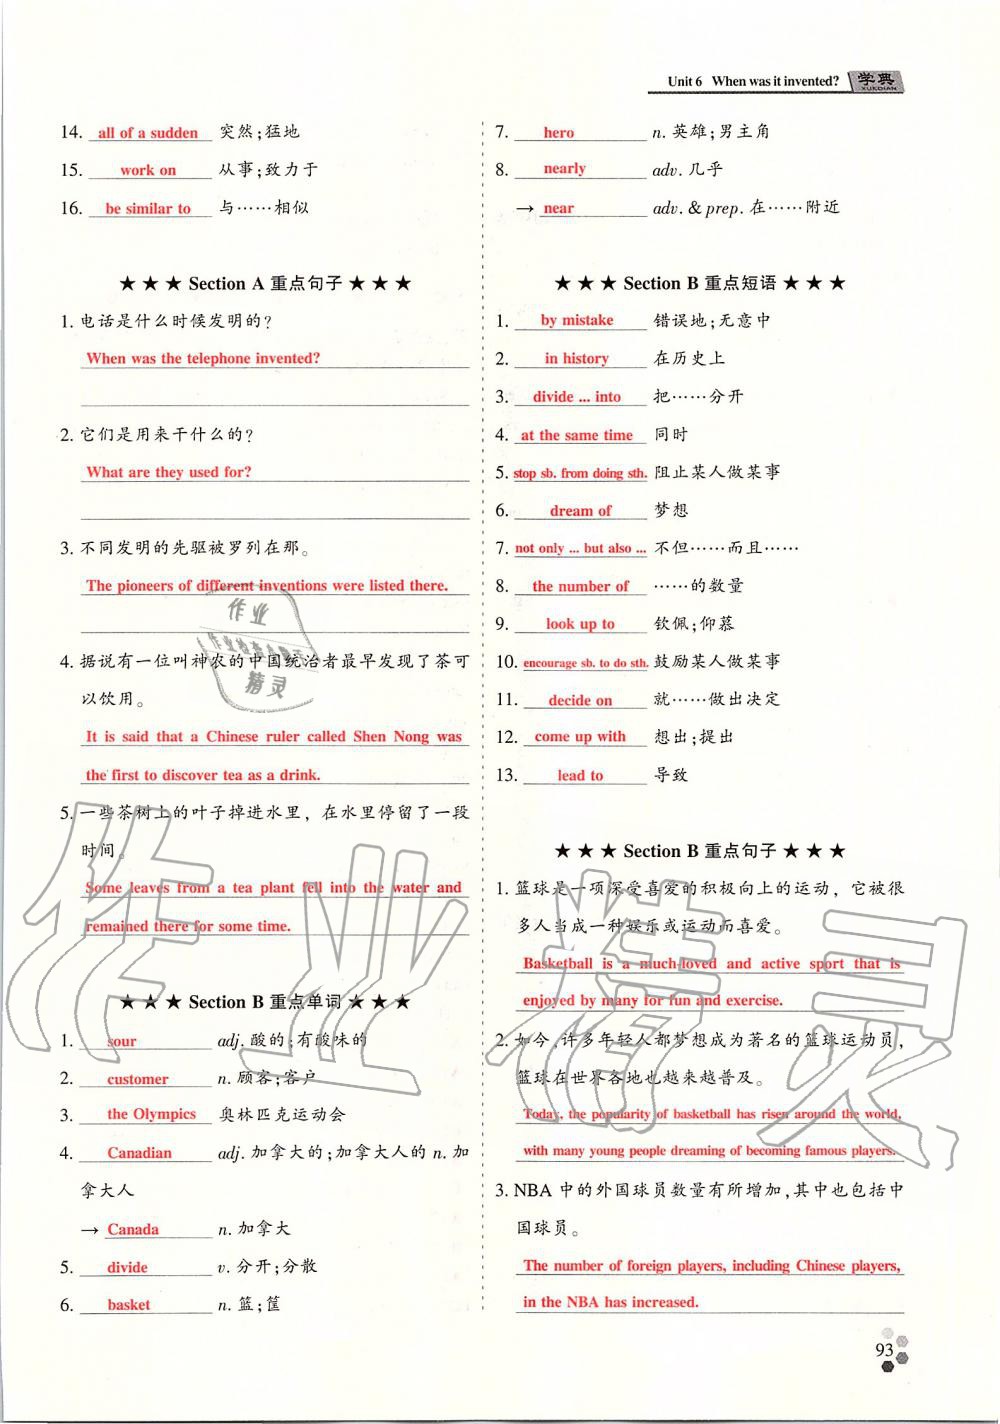 Unit 6 When was it invented? 学典
XUEDIAN
14. all of a sudden 突然;猛地
15. work on 从事;致力于
16. be similar to 与……相似
★ ★ ★ Section A 重点句子 ★ ★ ★
1. 电话是什么时候发明的?
When was the telephone invented?
2. 它们是用来干什么的?
What are they used for?
3. 不同发明的先驱被罗列在那。
The pioneers of different inventions were listed there.
4. 据说有一位叫神农的中国统治者最早发现了茶可
以饮用。
It is said that a Chinese ruler called Shen Nong was
the first to discover tea as a drink.
5. 一些茶树上的叶子掉进水里，在水里停留了一段
时间。
Some leaves from a tea plant fell into the water and
remained there for some time.
★ ★ ★ Section B 重点单词 ★ ★ ★
1. sour adj. 酸的;有酸味的
2. customer n. 顾客;客户
3. the Olympics 奥林匹克运动会
4. Canadian adj. 加拿大的;加拿大人的 n. 加
拿大人
→ Canada n. 加拿大
5. divide v. 分开;分散
6. basket n. 篮;筐
7. hero n. 英雄;男主角
8. nearly adv. 几乎
→ near adv. & prep. 在……附近
★ ★ ★ Section B 重点短语 ★ ★ ★
1. by mistake 错误地;无意中
2. in history 在历史上
3. divide ... into 把……分开
4. at the same time 同时
5. stop sb. from doing sth. 阻止某人做某事
6. dream of 梦想
7. not only ... but also ... 不但……而且……
8. the number of ……的数量
9. look up to 钦佩;仰慕
10. encourage sb. to do sth. 鼓励某人做某事
11. decide on 就……做出决定
12. come up with 想出;提出
13. lead to 导致
★ ★ ★ Section B 重点句子 ★ ★ ★
1. 篮球是一项深受喜爱的积极向上的运动，它被很
多人当成一种娱乐或运动而喜爱。
Basketball is a much-loved and active sport that is
enjoyed by many for fun and exercise.
2. 如今,许多年轻人都梦想成为著名的篮球运动员,
篮球在世界各地也越来越普及。
Today, the popularity of basketball has risen around the world,
with many young people dreaming of becoming famous players.
3. NBA 中的外国球员数量有所增加,其中也包括中
国球员。
The number of foreign players, including Chinese players,
in the NBA has increased.
93
作业
精灵
作业精灵